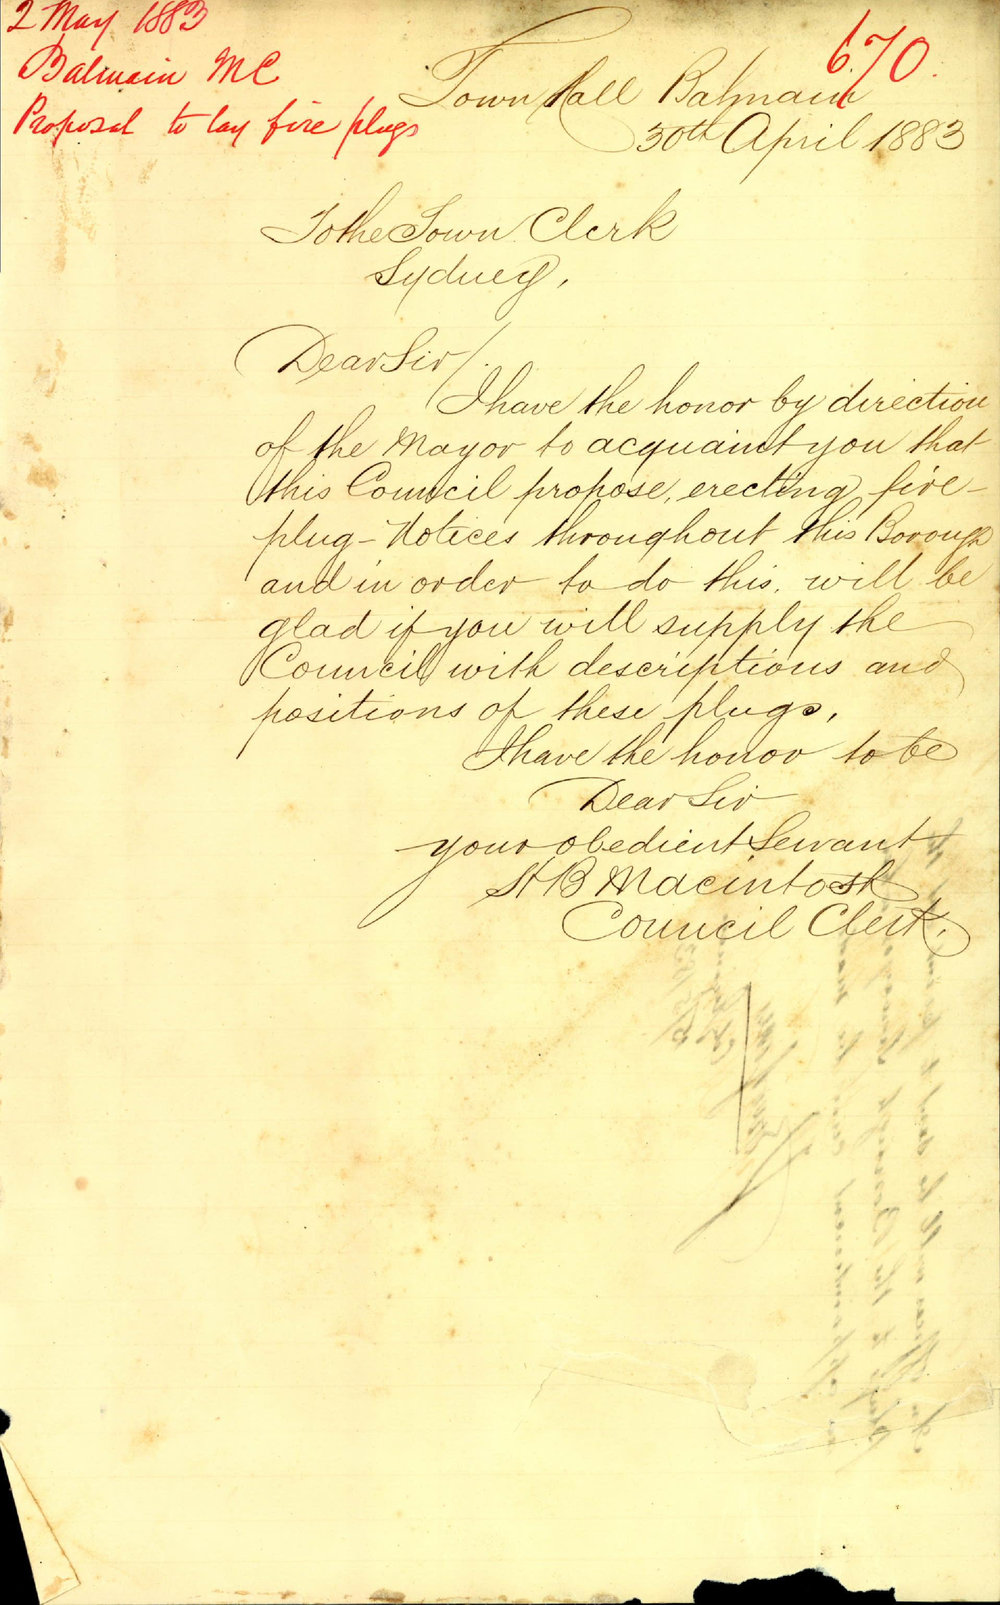 2 May 1883
Balmain MC
Proposal to lay fire plugs
670.
Town Hall Balmain
30th April 1883
To the Town Clerk
Sydney,
Dear Sir/.
I have the honor by direction
of the Mayor to acquaint you that
this Council propose, erecting fire-
plug-Notices throughout this Borough
and in order to do this, will be
glad if you will supply the
Council with descriptions and
positions of these plugs,
I have the honor to be
Dear Sir
your obedient Servant
HB Macintosh
Council Clerk.